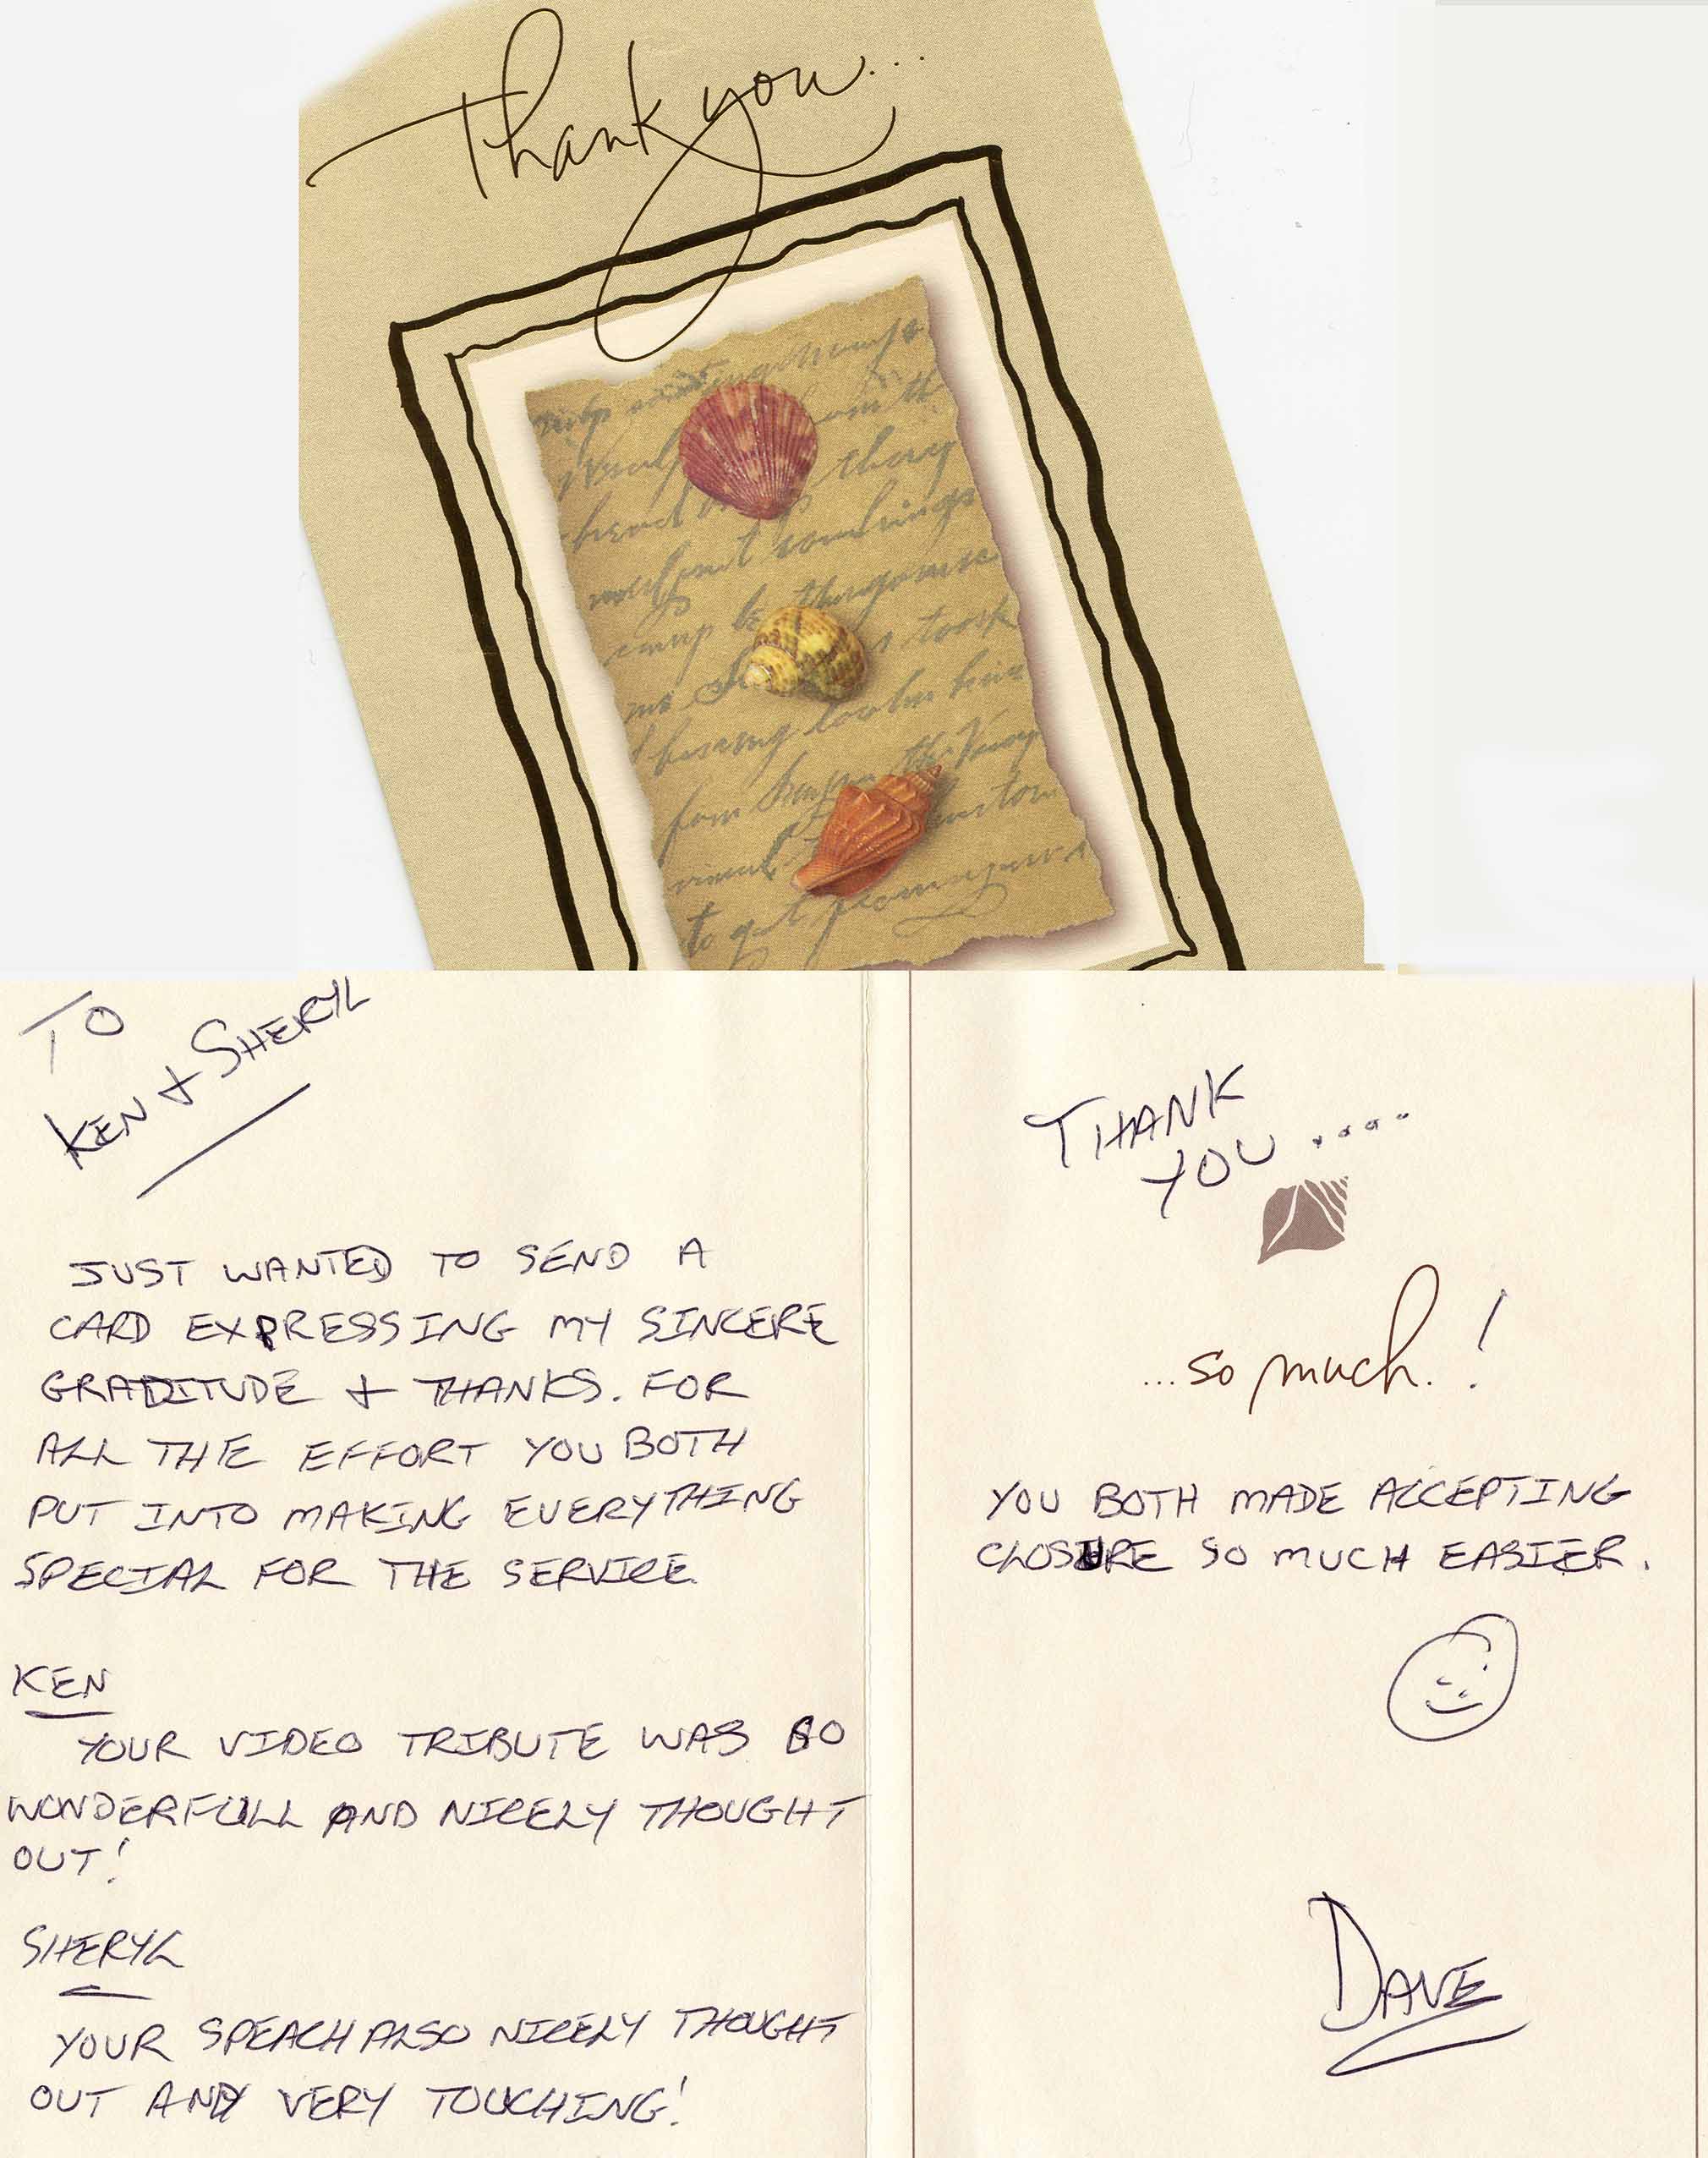 Thank you...
to get
TO
KEN & SHERYL
JUST WANTED TO SEND A
CARD EXPRESSING MY SINCERE
GRADITUDE & THANKS. FOR
ALL THE EFFORT YOU BOTH
PUT INTO MAKING EVERYTHING
SPECIAL FOR THE SERVICE
KEN
YOUR VIDEO TRIBUTE WAS SO
WONDERFULL AND NICELY THOUGHT
OUT!
SHERYL
YOUR SPEACH ALSO NICELY THOUGHT
OUT AND VERY TOUCHING!
THANK
YOU ....
...so much. !
YOU BOTH MADE ACCEPTING
CLOSURE SO MUCH EASIER.
DAVE